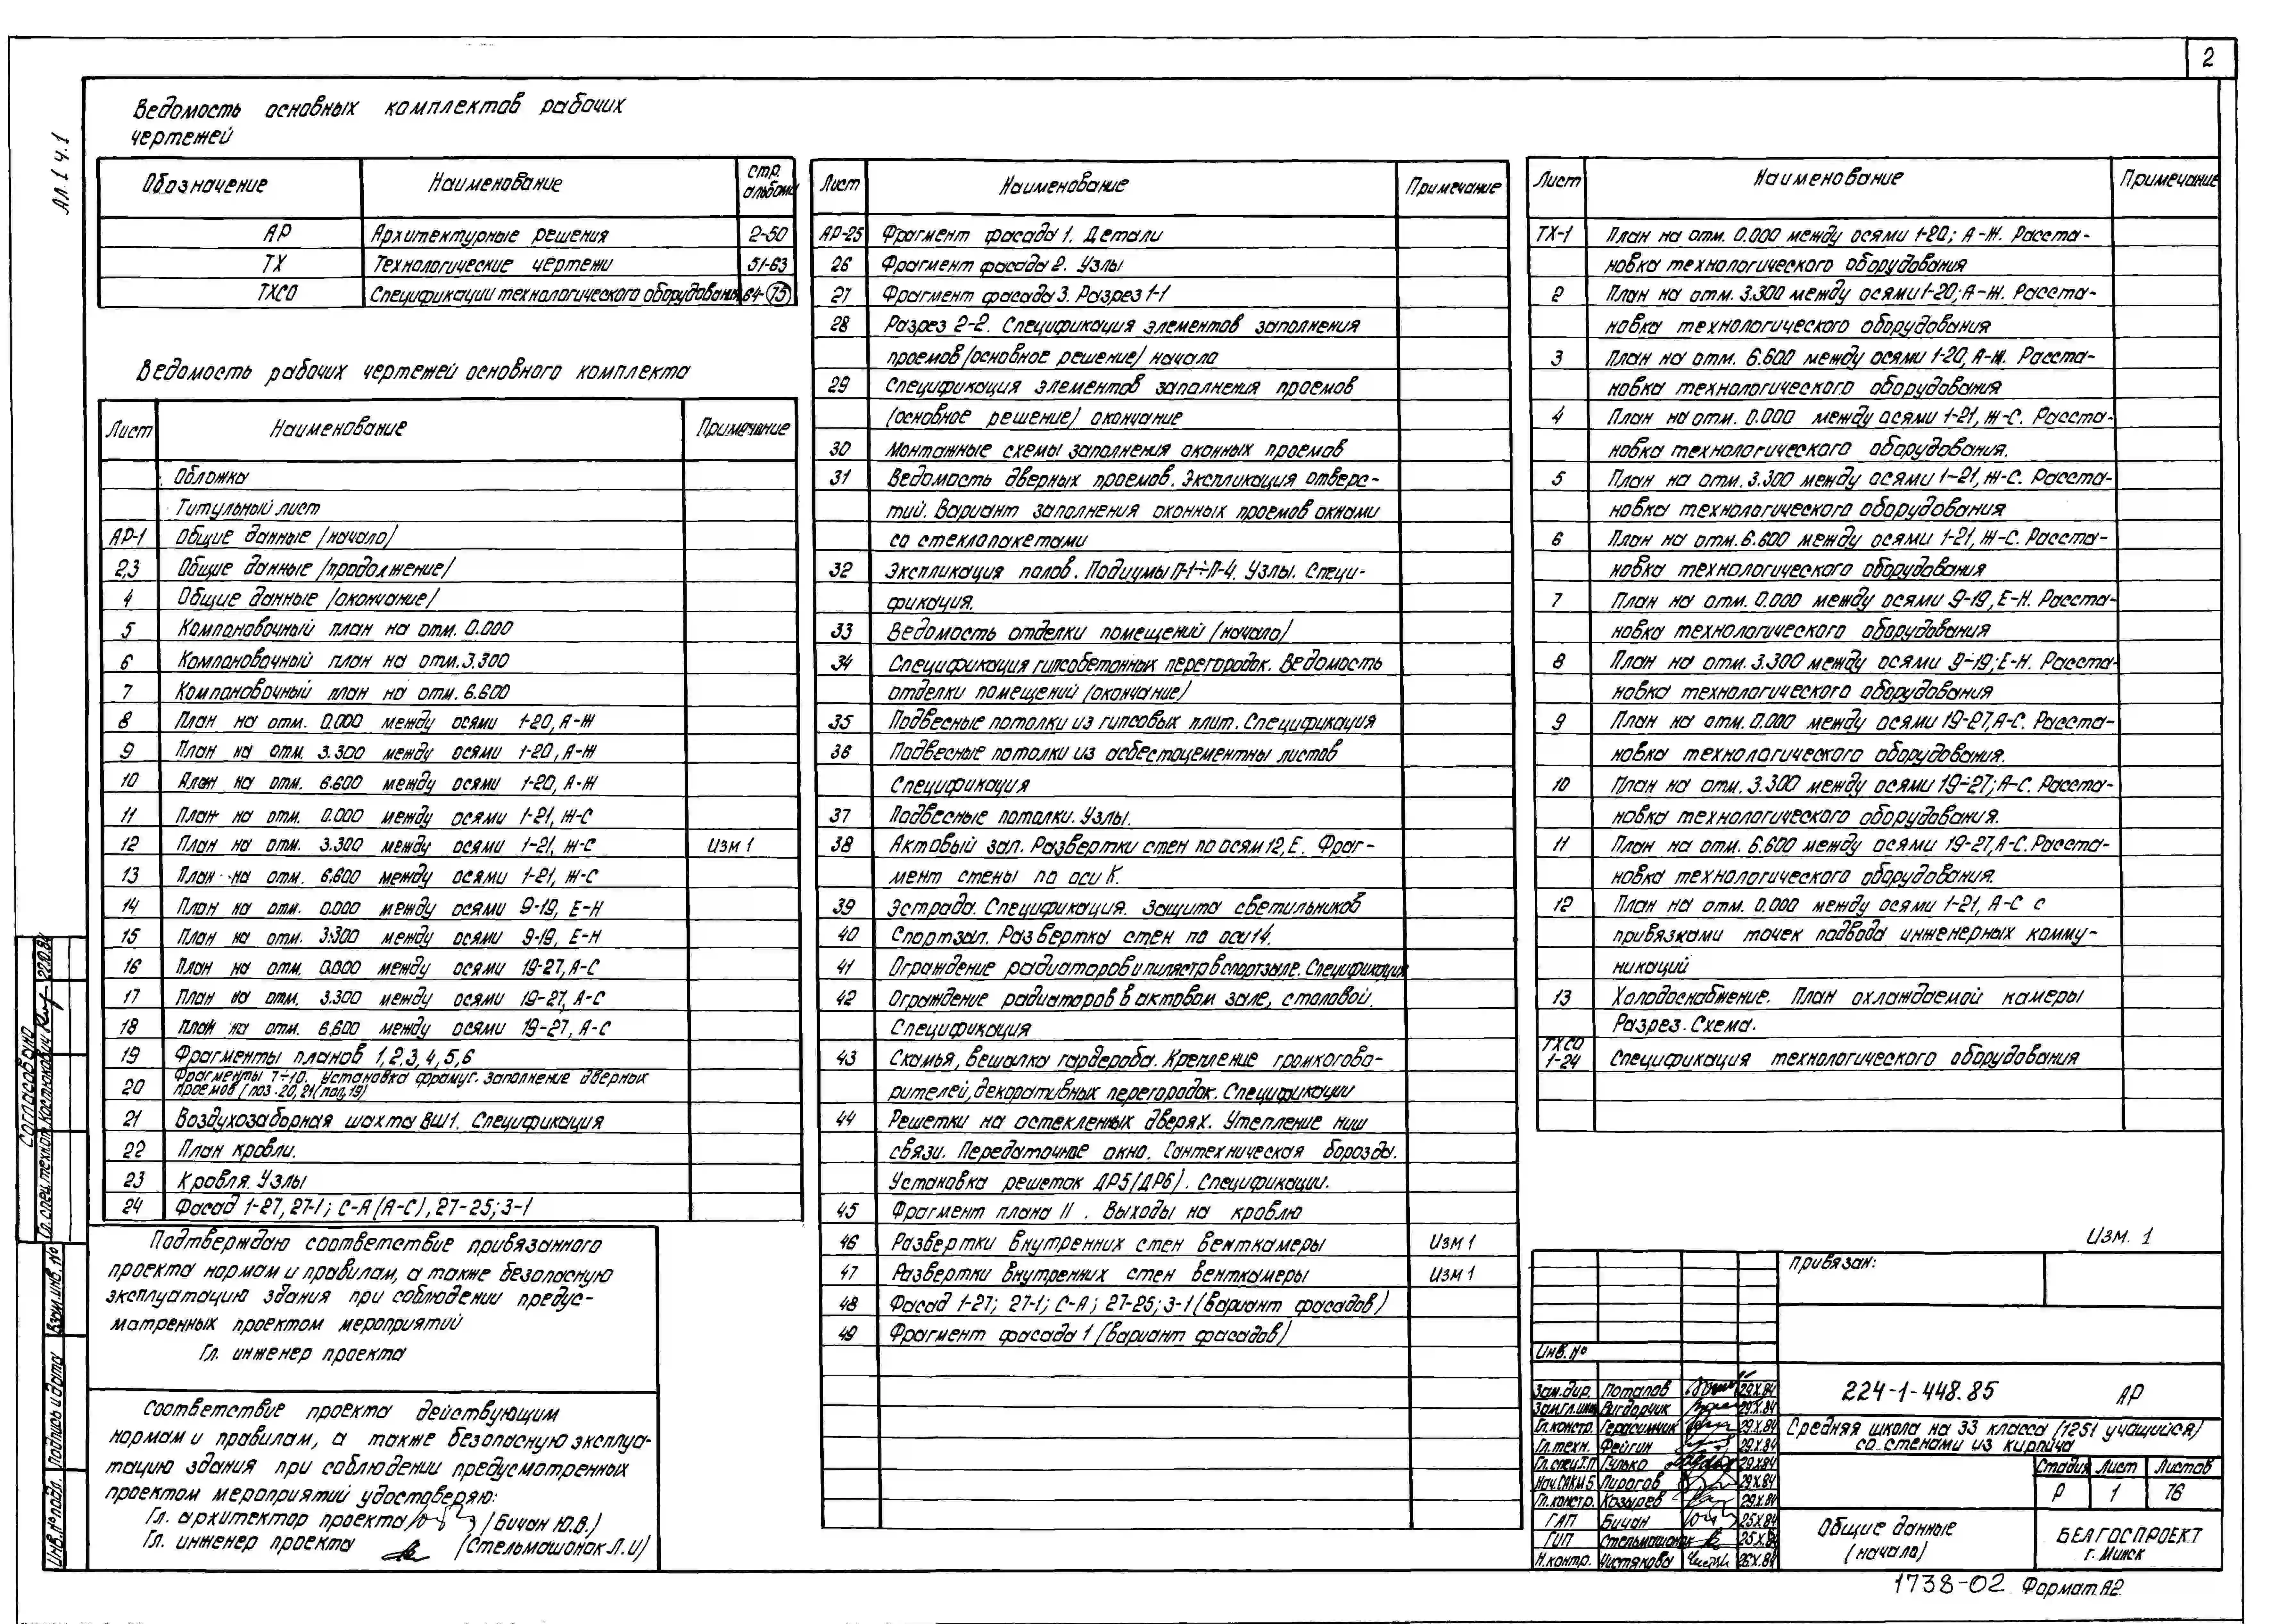 2
Ал. 1 ч.1
Ведомость основных комплектов рабочих
чертежей
Обозначение Наименование стр. альбома
АР Архитектурные решения 2-50
ТХ Технологические чертежи 51-63
ТХСО Спецификации технологического оборудования 64-75
Ведомость рабочих чертежей основного комплекта
Лист Наименование Примечание
Обложка
Титульный лист
АР-1 Общие данные (начало)
2,3 Общие данные (продолжение)
4 Общие данные (окончание)
5 Компановочный план на отм. 0.000
6 Компановочный план на отм. 3.300
7 Компановочный план на отм. 6.600
8 План на отм. 0.000 между осями 1-20, А-Ж
9 План на отм. 3.300 между осями 1-20, А-Ж
10 План на отм. 6.600 между осями 1-20, А-Ж
11 План на отм. 0.000 между осями 1-21, Ж-С
12 План на отм. 3.300 между осями 1-21, Ж-С Изм 1
13 План на отм. 6.600 между осями 1-21, Ж-С
14 План на отм. 0.000 между осями 9-19, Е-Н
15 План на отм. 3.300 между осями 9-19, Е-Н
16 План на отм. 0.000 между осями 19-27, А-С
17 План на отм. 3.300 между осями 19-27, А-С
18 План на отм. 6.600 между осями 19-27, А-С
19 Фрагменты планов 1,2,3,4,5,6
20 Фрагменты 7÷10. Установка фрамуг. Заполнение дверных
проемов (поз. 20, 21 (пол, 19)
21 Воздухозаборная шахта ВШ1. Спецификация
22 План кровли.
23 Кровля. Узлы
24 Фасад 1-27, 27-1; С-А (А-С), 27-25; 3-1
Подтверждаю соответствие привязанного
проекта нормам и правилам, а также безопасную
эксплуатацию здания при соблюдении предус-
матренных проектом мероприятий
Гл. инженер проекта
Соответствие проекта действующим
нормам и правилам, а также безопасную эксплуа-
тацию здания при соблюдении предусмотренных
проектом мероприятий удостоверяю:
Гл. архитектор проекта (Бичан Ю.В.)
Гл. инженер проекта (Стельмашонок Л.И)
Лист Наименование Примечание
АР-25 Фрагмент фасада 1. Детали
26 Фрагмент фасада 2. Узлы
27 Фрагмент фасада 3. Разрез 1-1
28 Разрез 2-2. Спецификация элементов заполнения
проемов (основное решение) начало
29 Спецификация элементов заполнения проемов
(основное решение) окончание
30 Монтажные схемы заполнения оконных проемов
31 Ведомость дверных проемов. Экспликация отверс-
тий. Вариант заполнения оконных проемов окнами
со стеклопакетами
32 Экспликация полов. Подиумы П-1÷П-4. Узлы. Специ-
фикация.
33 Ведомость отделки помещений (начало)
34 Спецификация гипсобетонных перегородок. Ведомость
отделки помещений (окончание)
35 Подвесные потолки из гипсовых плит. Спецификация
36 Подвесные потолки из асбестоцементны листов
Спецификация
37 Подвесные потолки. Узлы.
38 Актовый зал. Развертки стен по осям 12, Е. Фраг-
мент стены по оси К.
39 Эстрада. Спецификация. Защита светильников
40 Спортзал. Развертка стен по оси 14.
41 Ограждение радиаторов и пилястр в спортзале. Спецификация
42 Ограждение радиаторов в актовом зале, столовой.
Спецификация
43 Скамья, вешалка гардероба. Крепление громкогово-
рителей, декоративных перегородок. Спецификации
44 Решетки на остекленных дверях. Утепление ниш
связи. Передаточное окно. Сантехническая борозды.
Установка решеток ДР5 (ДР6). Спецификации.
45 Фрагмент плана 11. Выходы на кровлю
46 Развертки внутренних стен венткамеры Изм 1
47 Развертки внутренних стен венткамеры Изм 1
48 Фасад 1-27; 27-1; С-А; 27-25; 3-1 (вариант фасадов)
49 Фрагмент фасада 1 (вариант фасадов)
Лист Наименование Примечание
ТХ-1 План на отм. 0.000 между осями 1-20; А-Ж. Расста-
новка технологического оборудования
2 План на отм. 3.300 между осями 1-20; А-Ж. Расста-
новка технологического оборудования
3 План на отм. 6.600 между осями 1-20, А-Ж. Расста-
новка технологического оборудования
4 План на отм. 0.000 между осями 1-21, Ж-С. Расста-
новка технологического оборудования.
5 План на отм. 3.300 между осями 1-21, Ж-С. Расста-
новка технологического оборудования
6 План на отм. 6.600 между осями 1-21, Ж-С. Расста-
новка технологического оборудования
7 План на отм. 0.000 между осями 9-19, Е-Н. Расста-
новка технологического оборудования
8 План на отм. 3.300 между осями 9÷19; Е-Н. Расста-
новка технологического оборудования
9 План на отм. 0.000 между осями 19-27, А-С. Расста-
новка технологического оборудования.
10 План на отм. 3.300 между осями 19÷27; А-С. Расста-
новка технологического оборудования.
11 План на отм. 6.600 между осями 19-27, А-С. Расста-
новка технологического оборудования.
12 План на отм. 0.000 между осями 1-21, А-С с
привязками точек подвода инженерных комму-
никаций
13 Холодоснабжение. План охлаждаемой камеры
Разрез. Схема.
ТХСО 1-24 Спецификация технологического оборудования
Изм. 1
Привязан:
Инв. №
Зам.дир. Потапов 29.X.84
Зам.гл.инж Вигдорчик 29.X.84
Гл.констр. Герасимчик 29.X.84
Гл.техн. Фейгин 29.X.84
Гл.спец.Т.П Гулько 29.X.84
Нач.САКМ5 Пирогов 29.X.84
Гл.констр. Козырев 29.X.84
ГАП Бичан 25.X.84
ГИП Стельмашонок 25.X.84
Н.контр. Чистякова 26.X.84
224-1-448.85 АР
Средняя школа на 33 класса (1251 учащийся)
со стенами из кирпича
Стадия Лист Листов
Р 1 76
Общие данные
(начало)
БЕЛГОСПРОЕКТ
г. Минск
1738-02 Формат А2
Согласовано
Гл.спец.технол. Костюкович 22.10.84
Взам.инв. №
Подпись и дата
Инв.№ подл.